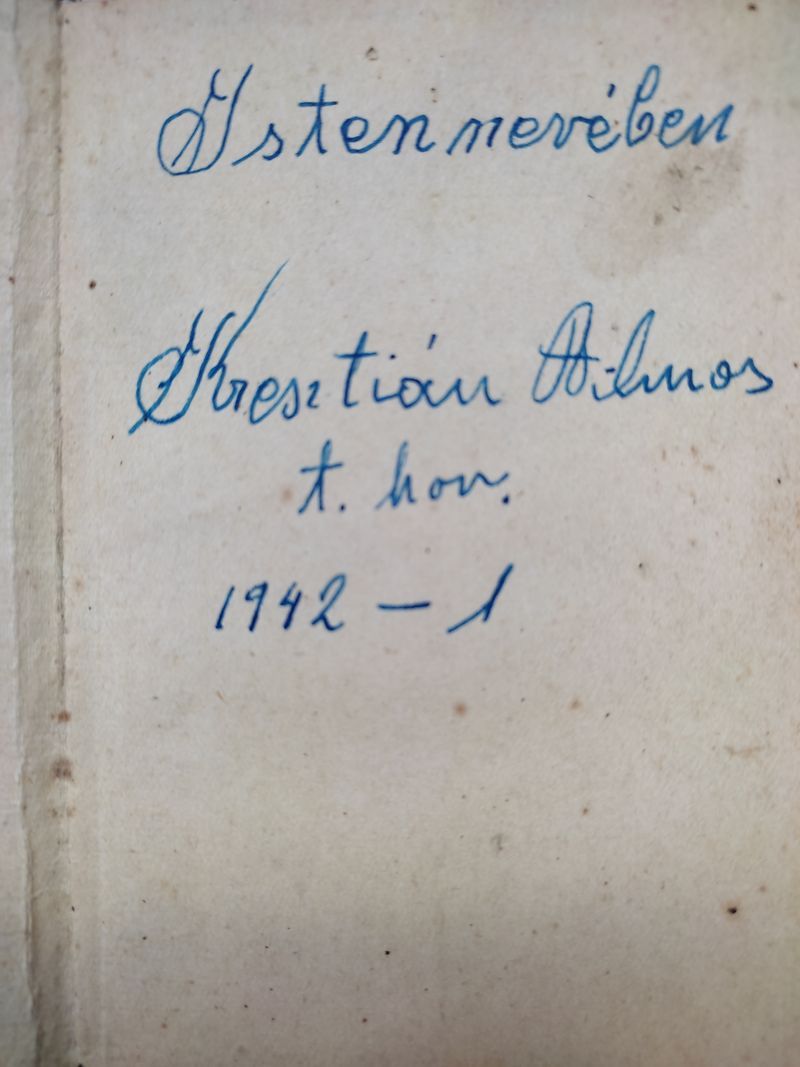 Isten nevében
Kresztián Vilmos
t. hon.
1942 – 1